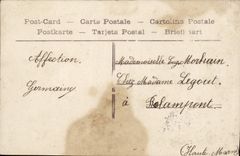 Post-Card — Carte Postale — Cartolina Postale
Postkarte — Tarjeta Postal — Brief art
Affection.
Germaine
Mademoiselle
Chez Madame Legout
à
(Haute Marne)